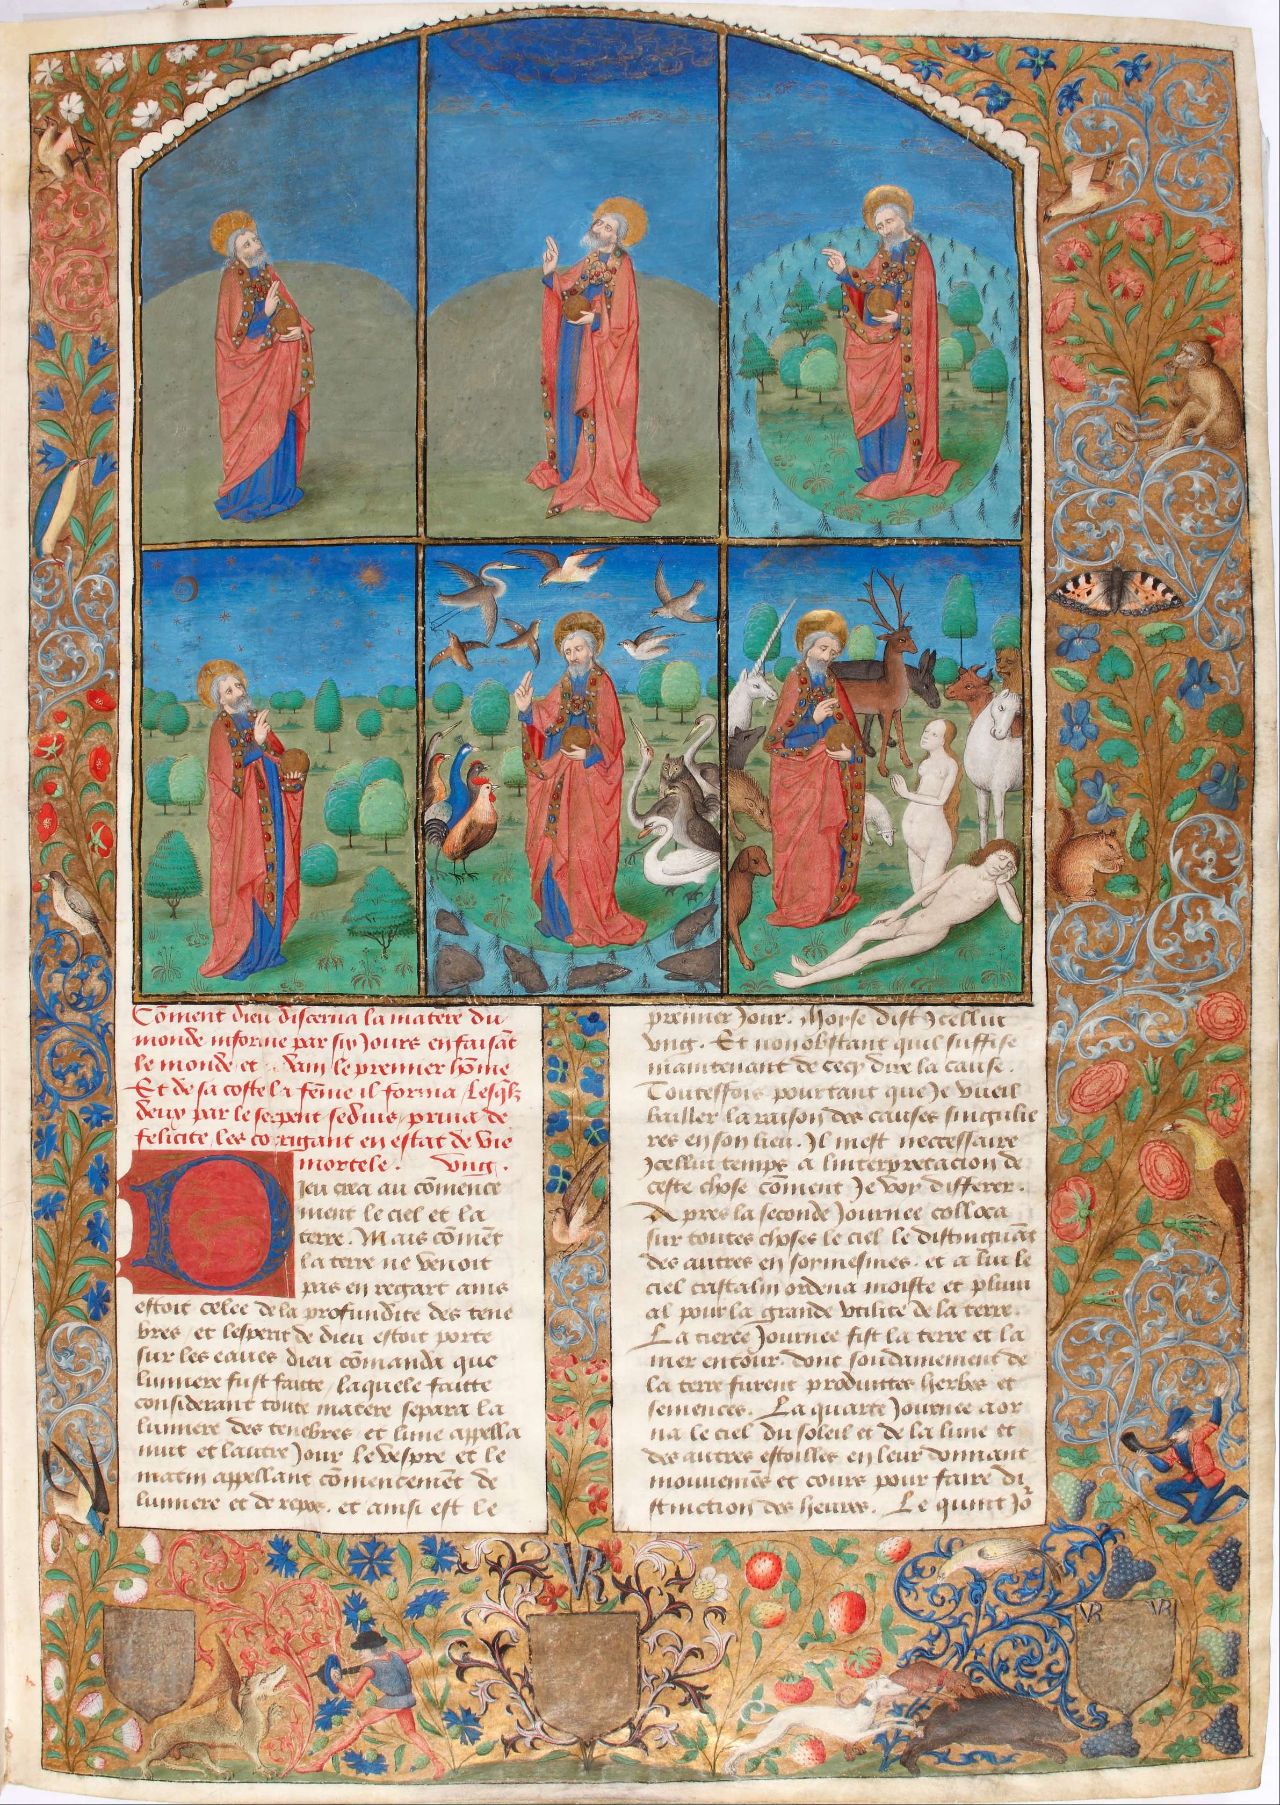 Cõment dieu discerna la matere du
monde informe par six Jours en faisãt
le monde et Adam le premier hõme
Et de sa coste la fẽme il forma Lesqlz
deux par le serpent seduis priua de
felicite les corrigant en estat de vie
mortele. vng.
Dieu crea au cõmence
ment le ciel et la
terre. Mais cõmẽt
la terre ne venoit
pas en regart ains
estoit celee de la profundite des tene
bres et lesperit de dieu estoit porte
sur les eaues dieu cõmanda que
lumiere fust faitte laquele faitte
considerant toute matere separa la
lumiere des tenebres et lune appella
nuit et lautre Jour le vespre et le
matin appellant cõmencement de
lumiere et de repos. et ainsi est le
premier Jour. Moyse dist Jcellui
vng. Et non obstant quil suffise
maintenant de cecy dire la cause.
Touteffois pourtant que Je vueil
bailler la raison des causes singulie
res en son lieu. Jl mest necessaire
Jcellui temps a linterpretacion de
ceste chose cõment Je voy differer.
Apres la seconde Journee colloca
sur toutes choses le ciel le distinguãt
des autres en soymesmes. et a lui le
ciel cristalin ordena moiste et pluui
al pour la grande vtilite de la terre.
La tierce Journee fist la terre et la
mer entour. dont soudainement de
la terre furent produittes herbes et
semences. La quarte Journee aor
na le ciel du soleil et de la lune et
des autres estoilles en leur donnant
mouuemẽs et cours pour faire di
stinction des heures. Le quint Jõ
VR
VR VR